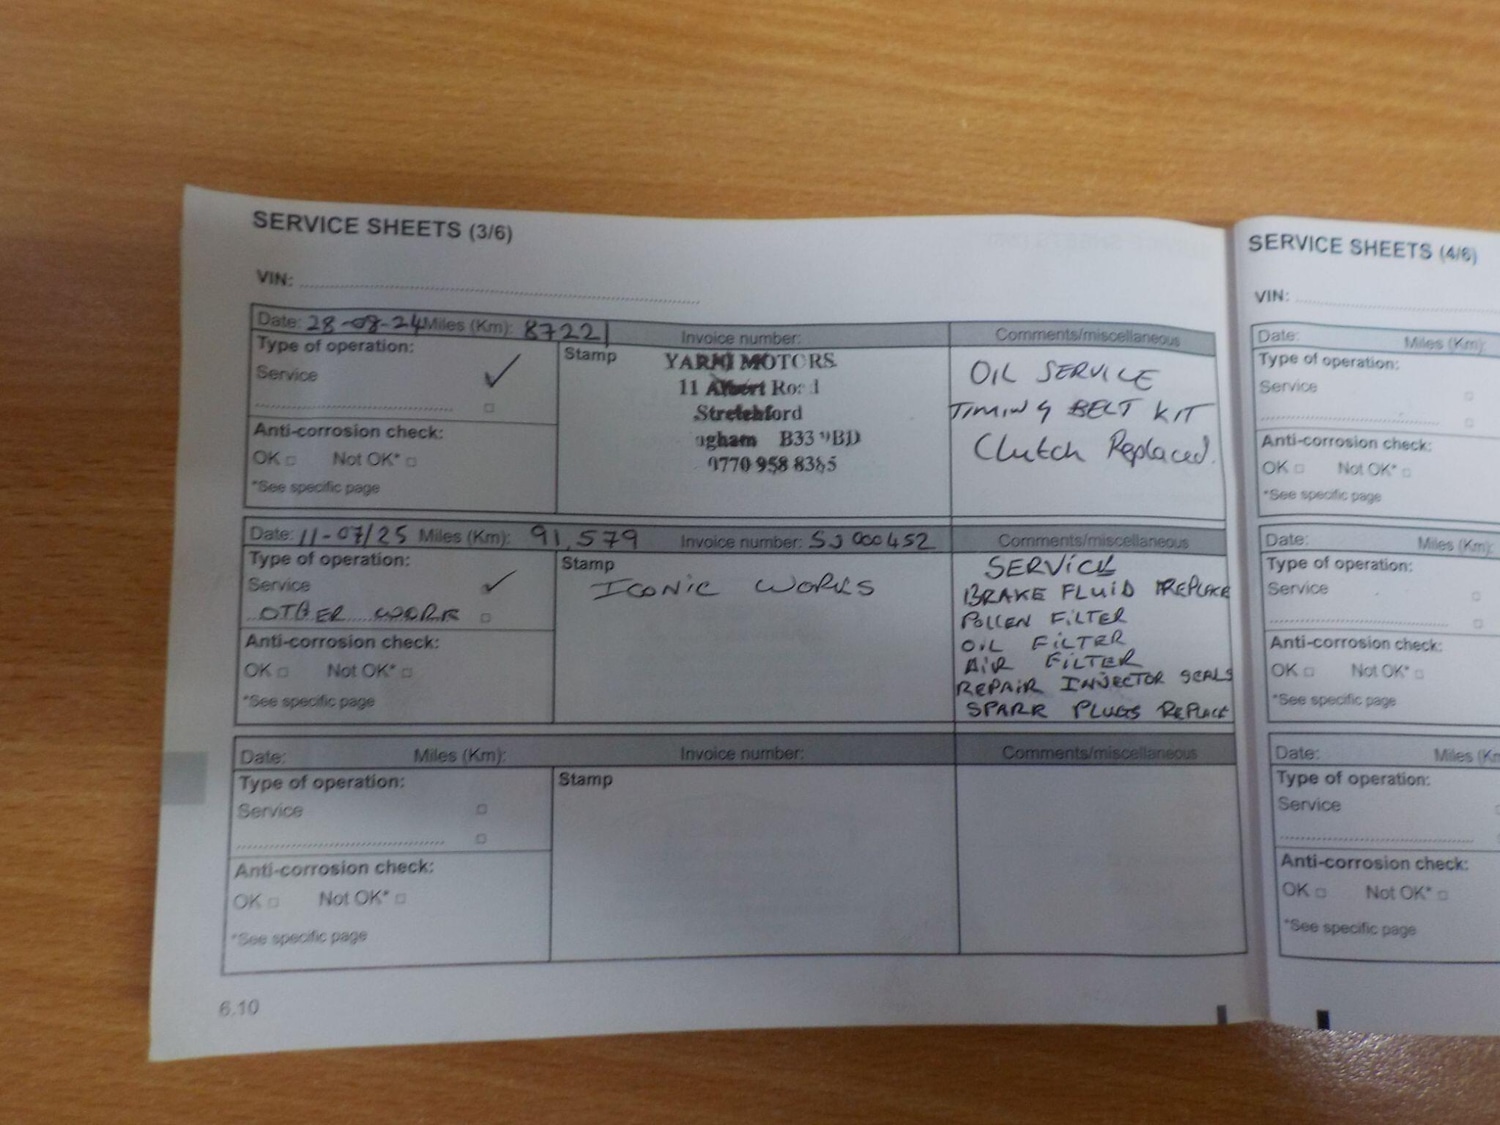 SERVICE SHEETS (3/6)
VIN:
Date: 28-08-24 Miles (Km): 87221 Invoice number: Comments/miscellaneous
Type of operation:
Service ✓
Anti-corrosion check:
OK Not OK*
*See specific page
Stamp
YARNI MOTORS
11 Albert Road
Stretchford
ngham B33 9BD
0770 958 8385
OIL SERVICE
TIMING BELT KIT
Clutch Replaced.
Date: 11-07/25 Miles (Km): 91,579 Invoice number: SJ000452 Comments/miscellaneous
Type of operation:
Service ✓
OTHER WORK
Anti-corrosion check:
OK Not OK*
*See specific page
Stamp
ICONIC WORKS
SERVICE
BRAKE FLUID REPLACE
POLLEN FILTER
OIL FILTER
AIR FILTER
REPAIR INJECTOR SEALS
SPARK PLUGS REPLACE
Date: Miles (Km): Invoice number: Comments/miscellaneous
Type of operation:
Service
Anti-corrosion check:
OK Not OK*
*See specific page
Stamp
6.10
SERVICE SHEETS (4/6)
VIN:
Date: Miles (Km):
Type of operation:
Service
Anti-corrosion check:
OK Not OK*
*See specific page
Date: Miles (Km):
Type of operation:
Service
Anti-corrosion check:
OK Not OK*
*See specific page
Date: Miles (Km
Type of operation:
Service
Anti-corrosion check:
OK Not OK*
*See specific page